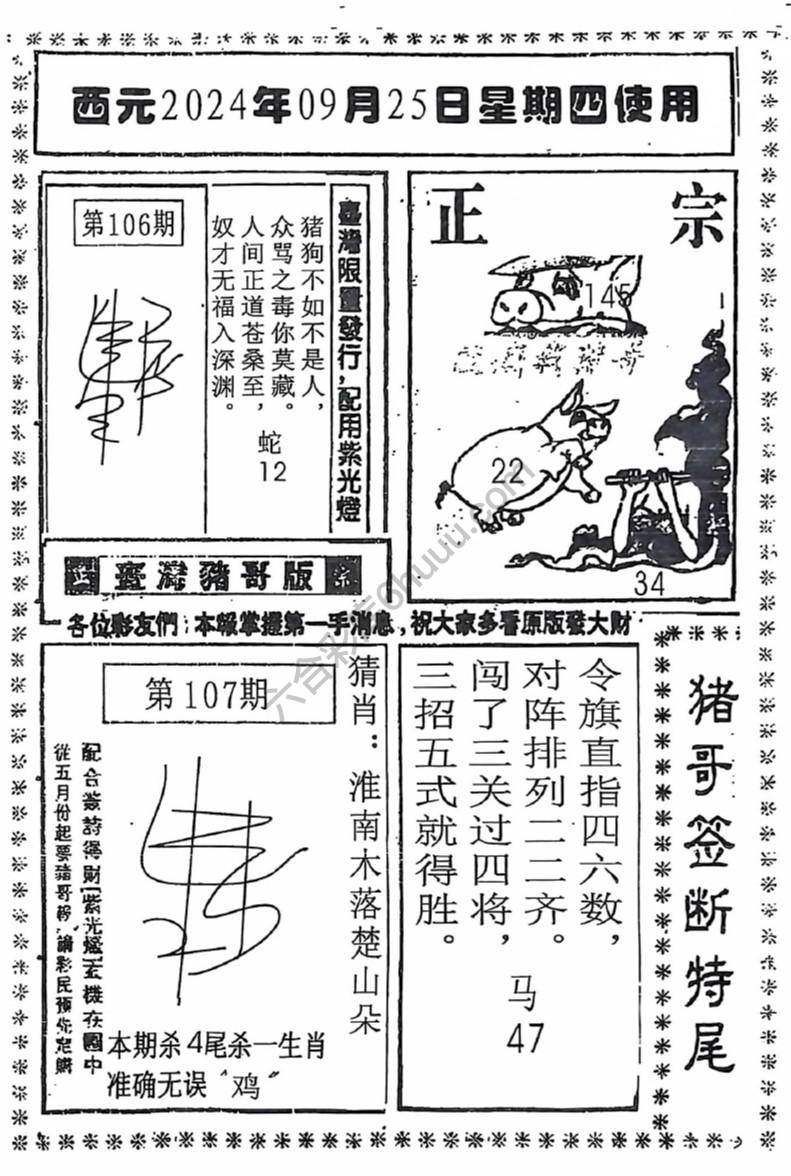 西元2024年09月25日星期四使用
第106期
猪狗不如不是人，
众骂之毒你莫藏。
人间正道苍桑至，
奴才无福入深渊。
蛇
12
臺灣限量發行，配用紫光燈
正宗
145
22
34
正 臺灣豬哥版 宗
各位彩友們：本報掌握第一手消息，祝大家多看原版發大財
第107期
猜肖：淮南木落楚山朵
配合簽詩得財紫光燈玄機在圖中
從五月份起要豬哥報 請彩民預先定購
本期杀4尾杀一生肖
准确无误“鸡”
令旗直指四六数，
对阵排列二二齐。
闯了三关过四将，
三招五式就得胜。
马
47
猪哥签断特尾